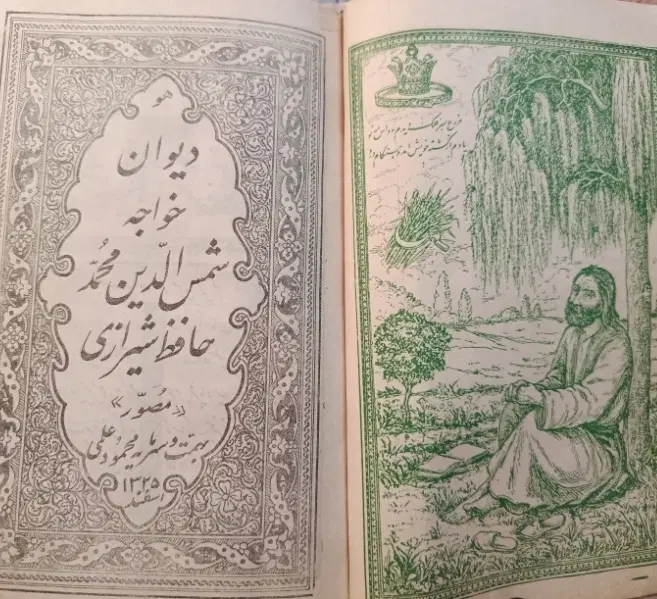 هو
دیوان
خواجه
شمس الدّین محمّد
حافظ شیرازی
«مُصوّر»
بهمت و سرمایه محمود علمی
۱۳۲۵
اسفند
مزرع سبز فلک دیدم و داس مه نو
یادم از کشته خویش آمد و هنگام درو